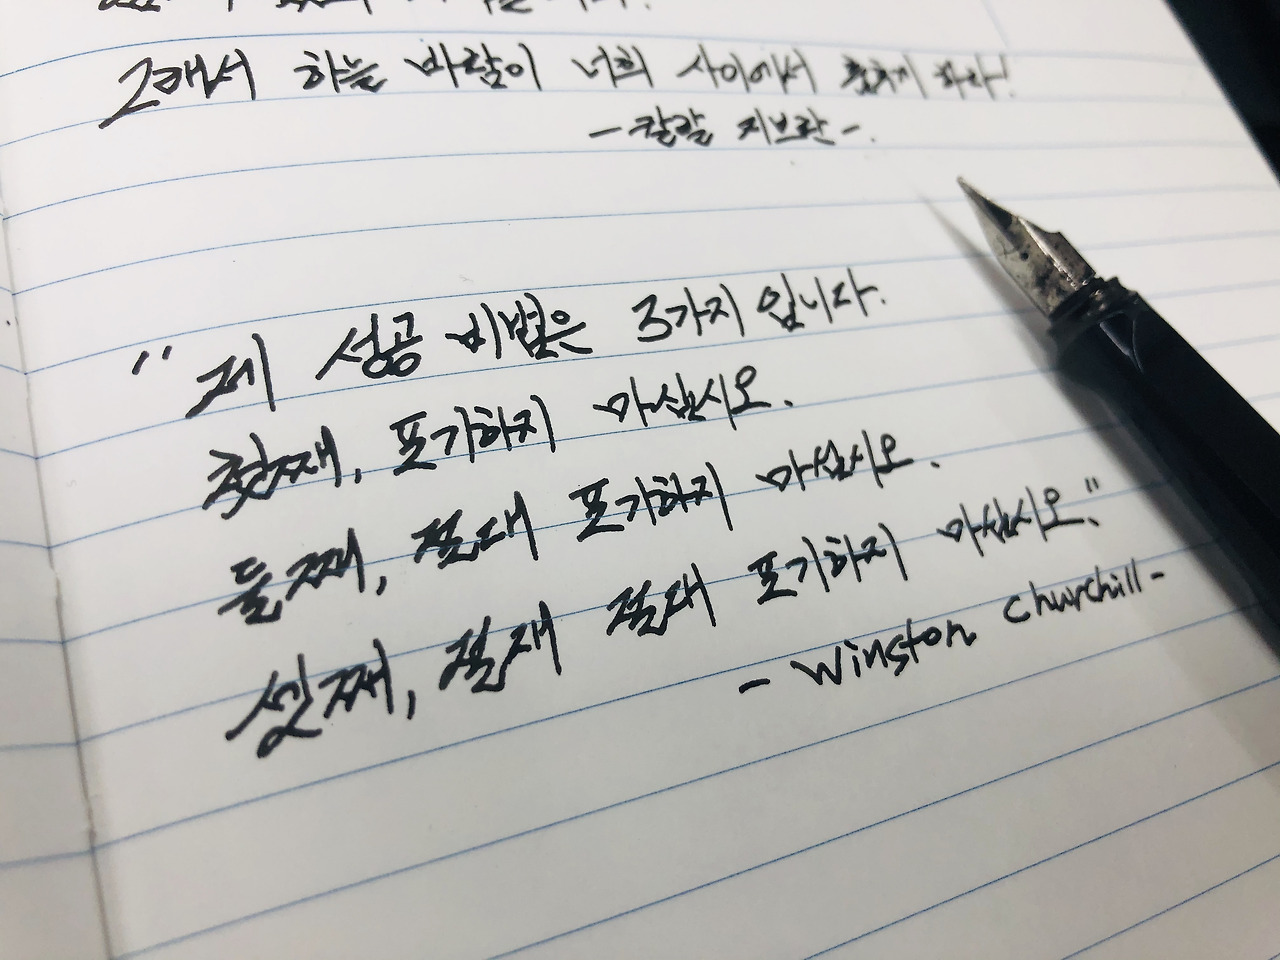 그래서 하늘 바람이 너희 사이에서 춤추게 하라!
- 칼릴 지브란 -.
" 제 성공 비별은 3가지 입니다.
첫째, 포기하지 마십시오.
둘째, 절대 포기하지 마십시오.
셋째, 절대 절대 포기하지 마십시오."
- Winston Churchill -